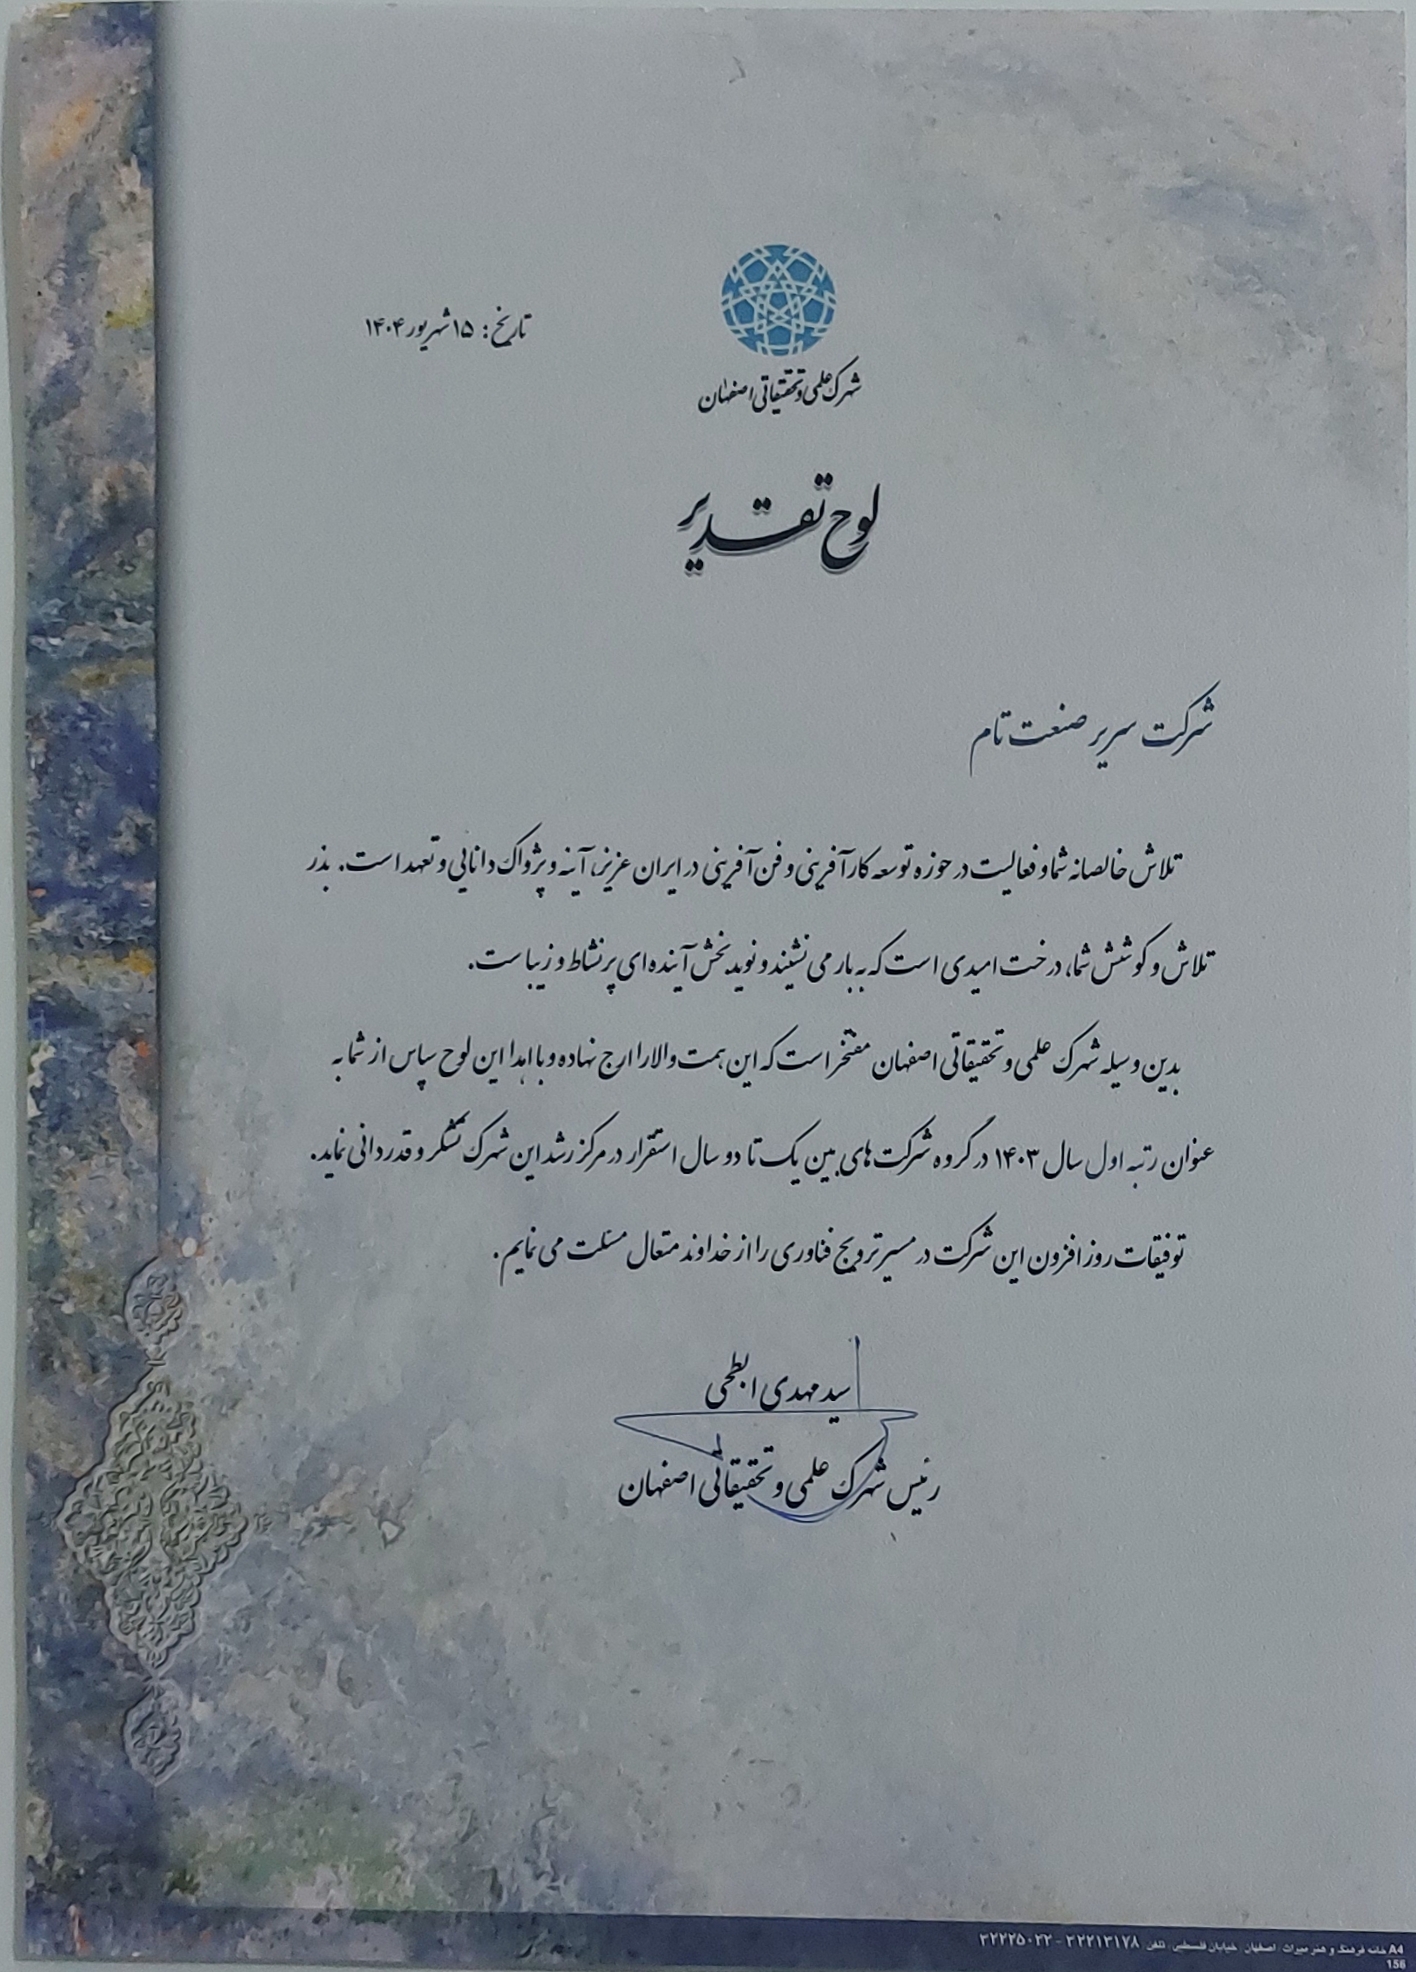 تاریخ: ۱۵ شهریور ۱۴۰۴
شهرک علمی و تحقیقاتی اصفهان
لوح تقدیر
شرکت سریر صنعت تام
تلاش خالصانه شما و فعالیت در حوزه توسعه کارآفرینی و فن‌آفرینی در ایران عزیز، آینه و پژواک دانایی و تعهد است. بذر
تلاش و کوشش شما، درخت امیدی است که به بار می نشیند و نوید بخش آینده ای پر نشاط و زیباست.
بدین وسیله شهرک علمی و تحقیقاتی اصفهان مفتخر است که این همت والا را ارج نهاده و با اهدا این لوح سپاس از شما به
عنوان رتبه اول سال ۱۴۰۳ در گروه شرکت های بین یک تا دو سال استقرار در مرکز رشد این شهرک تشکر و قدردانی نماید.
توفیقات روز افزون این شرکت در مسیر ترویج فناوری را از خداوند متعال مسئلت می نمایم.
سید مهدی ابطحی
رئیس شهرک علمی و تحقیقاتی اصفهان
A4 خانه فرهنگ و هنر میراث اصفهان خیابان فلسطین تلفن ۳۲۲۱۳۱۷۸ - ۳۲۲۲۵۰۲۲
156